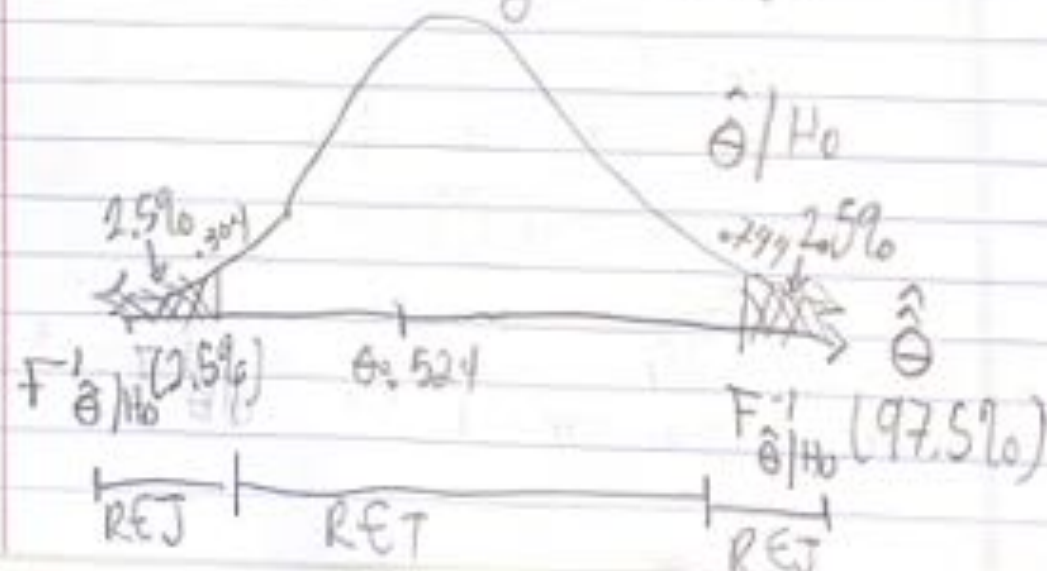 θ̂/H₀
2.5% .304
.744 2.5%
θ̂
F⁻¹θ̂/H₀ (2.5%)
θ₀ .524
F⁻¹θ̂/H₀ (97.5%)
REJ RET REJ